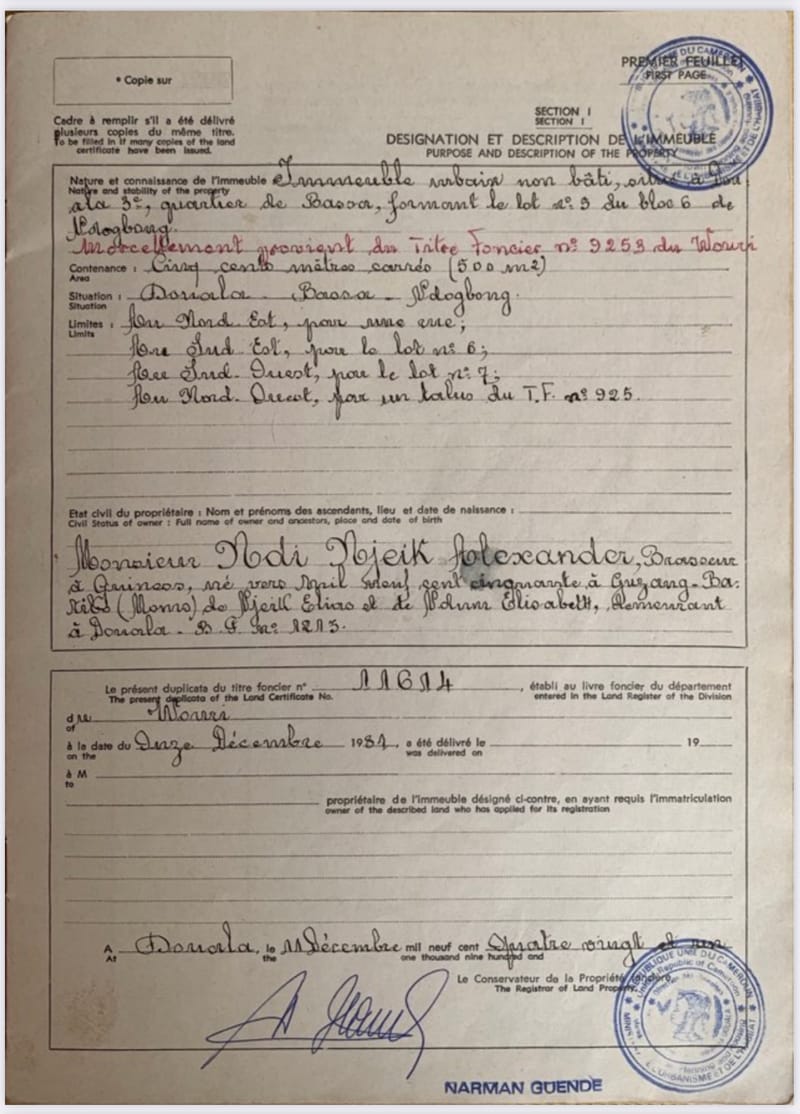 PREMIER FEUILLET
FIRST PAGE
• Copie sur
Cadre à remplir s'il a été délivré
plusieurs copies du même titre.
To be filled in if many copies of the land
certificate have been issued.
SECTION I
SECTION I
DESIGNATION ET DESCRIPTION DE L'IMMEUBLE
PURPOSE AND DESCRIPTION OF THE PROPERTY
Nature et connaissance de l'immeuble : Immeuble urbain non bâti, situé à Dou
Nature and stability of the property
ala 3e, quartier de Bassa, formant le lot n° 3 du bloc 6 de
Ndogbong.
Morcellement provient du Titre Foncier n° 9253 du Wouri
Contenance : Cinq cents mètres carrés (500 m2)
Area
Situation : Douala - Bassa - Ndogbong.
Situation
Limites : Au Nord Est, par une rue;
Limits
Au Sud Est, par le lot n° 6;
Au Sud-Ouest, par le lot n° 7;
Au Nord-Ouest, par un talus du T.F. n° 925.
Etat civil du propriétaire : Nom et prénoms des ascendants, lieu et date de naissance :
Civil Status of owner : Full name of owner and ancestors, place and date of birth
Monsieur Ndi Njeik Alexander, Brasseur
à Guiness, né vers mil neuf cent cinquante à Guzang-Ba-
(Momo) de Njeik Elias et de Ndum Elisabeth, demeurant
à Douala - B.P. n° 1213.
Le présent duplicata du titre foncier n° 11614, établi au livre foncier du département
The present duplicata of the Land Certificate No. entered in the Land Register of the Division
du Wouri
of
à la date du Onze Décembre 1981, a été délivré le 19
on the was delivered on
à M
to
propriétaire de l'immeuble désigné ci-contre, en ayant requis l'immatriculation
owner of the described land who has applied for its registration
A Douala, le 11 Décembre mil neuf cent Quatre vingt et un
At the one thousand nine hundred and
Le Conservateur de la Propriété foncière,
The Registrar of Land Property.
REPUBLIQUE UNIE DU CAMEROUN
United Republic of Cameroon
L'URBANISME ET DE L'HABITAT
NARMAN GUENDE